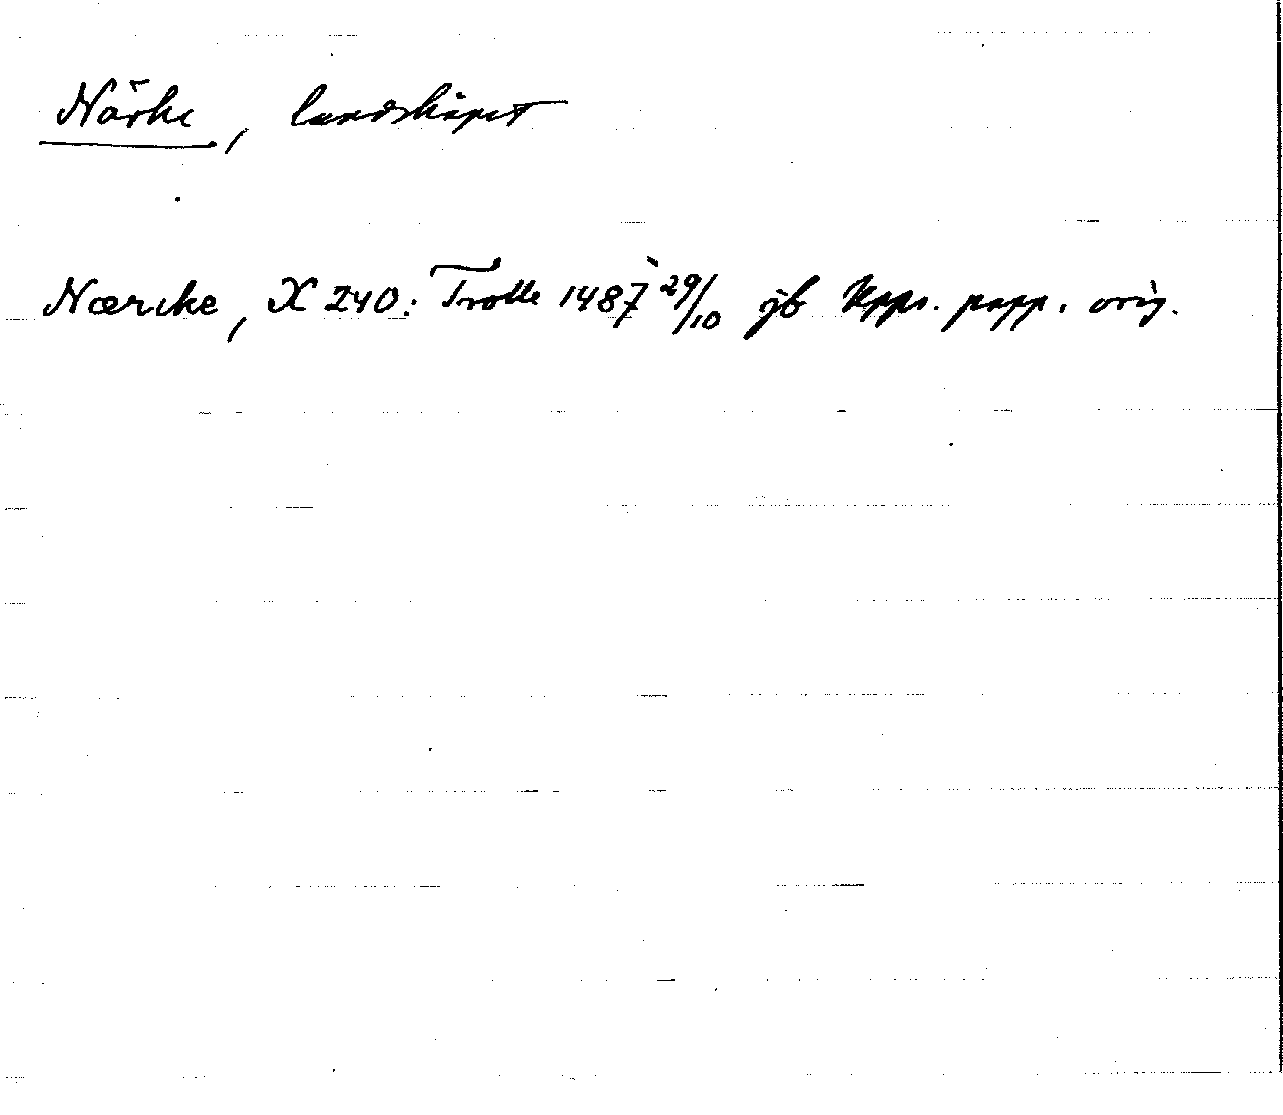 Närke, landskapet
Nærcke, X 240: Trolle 1487 29/10 jb Upps. papp. orig.